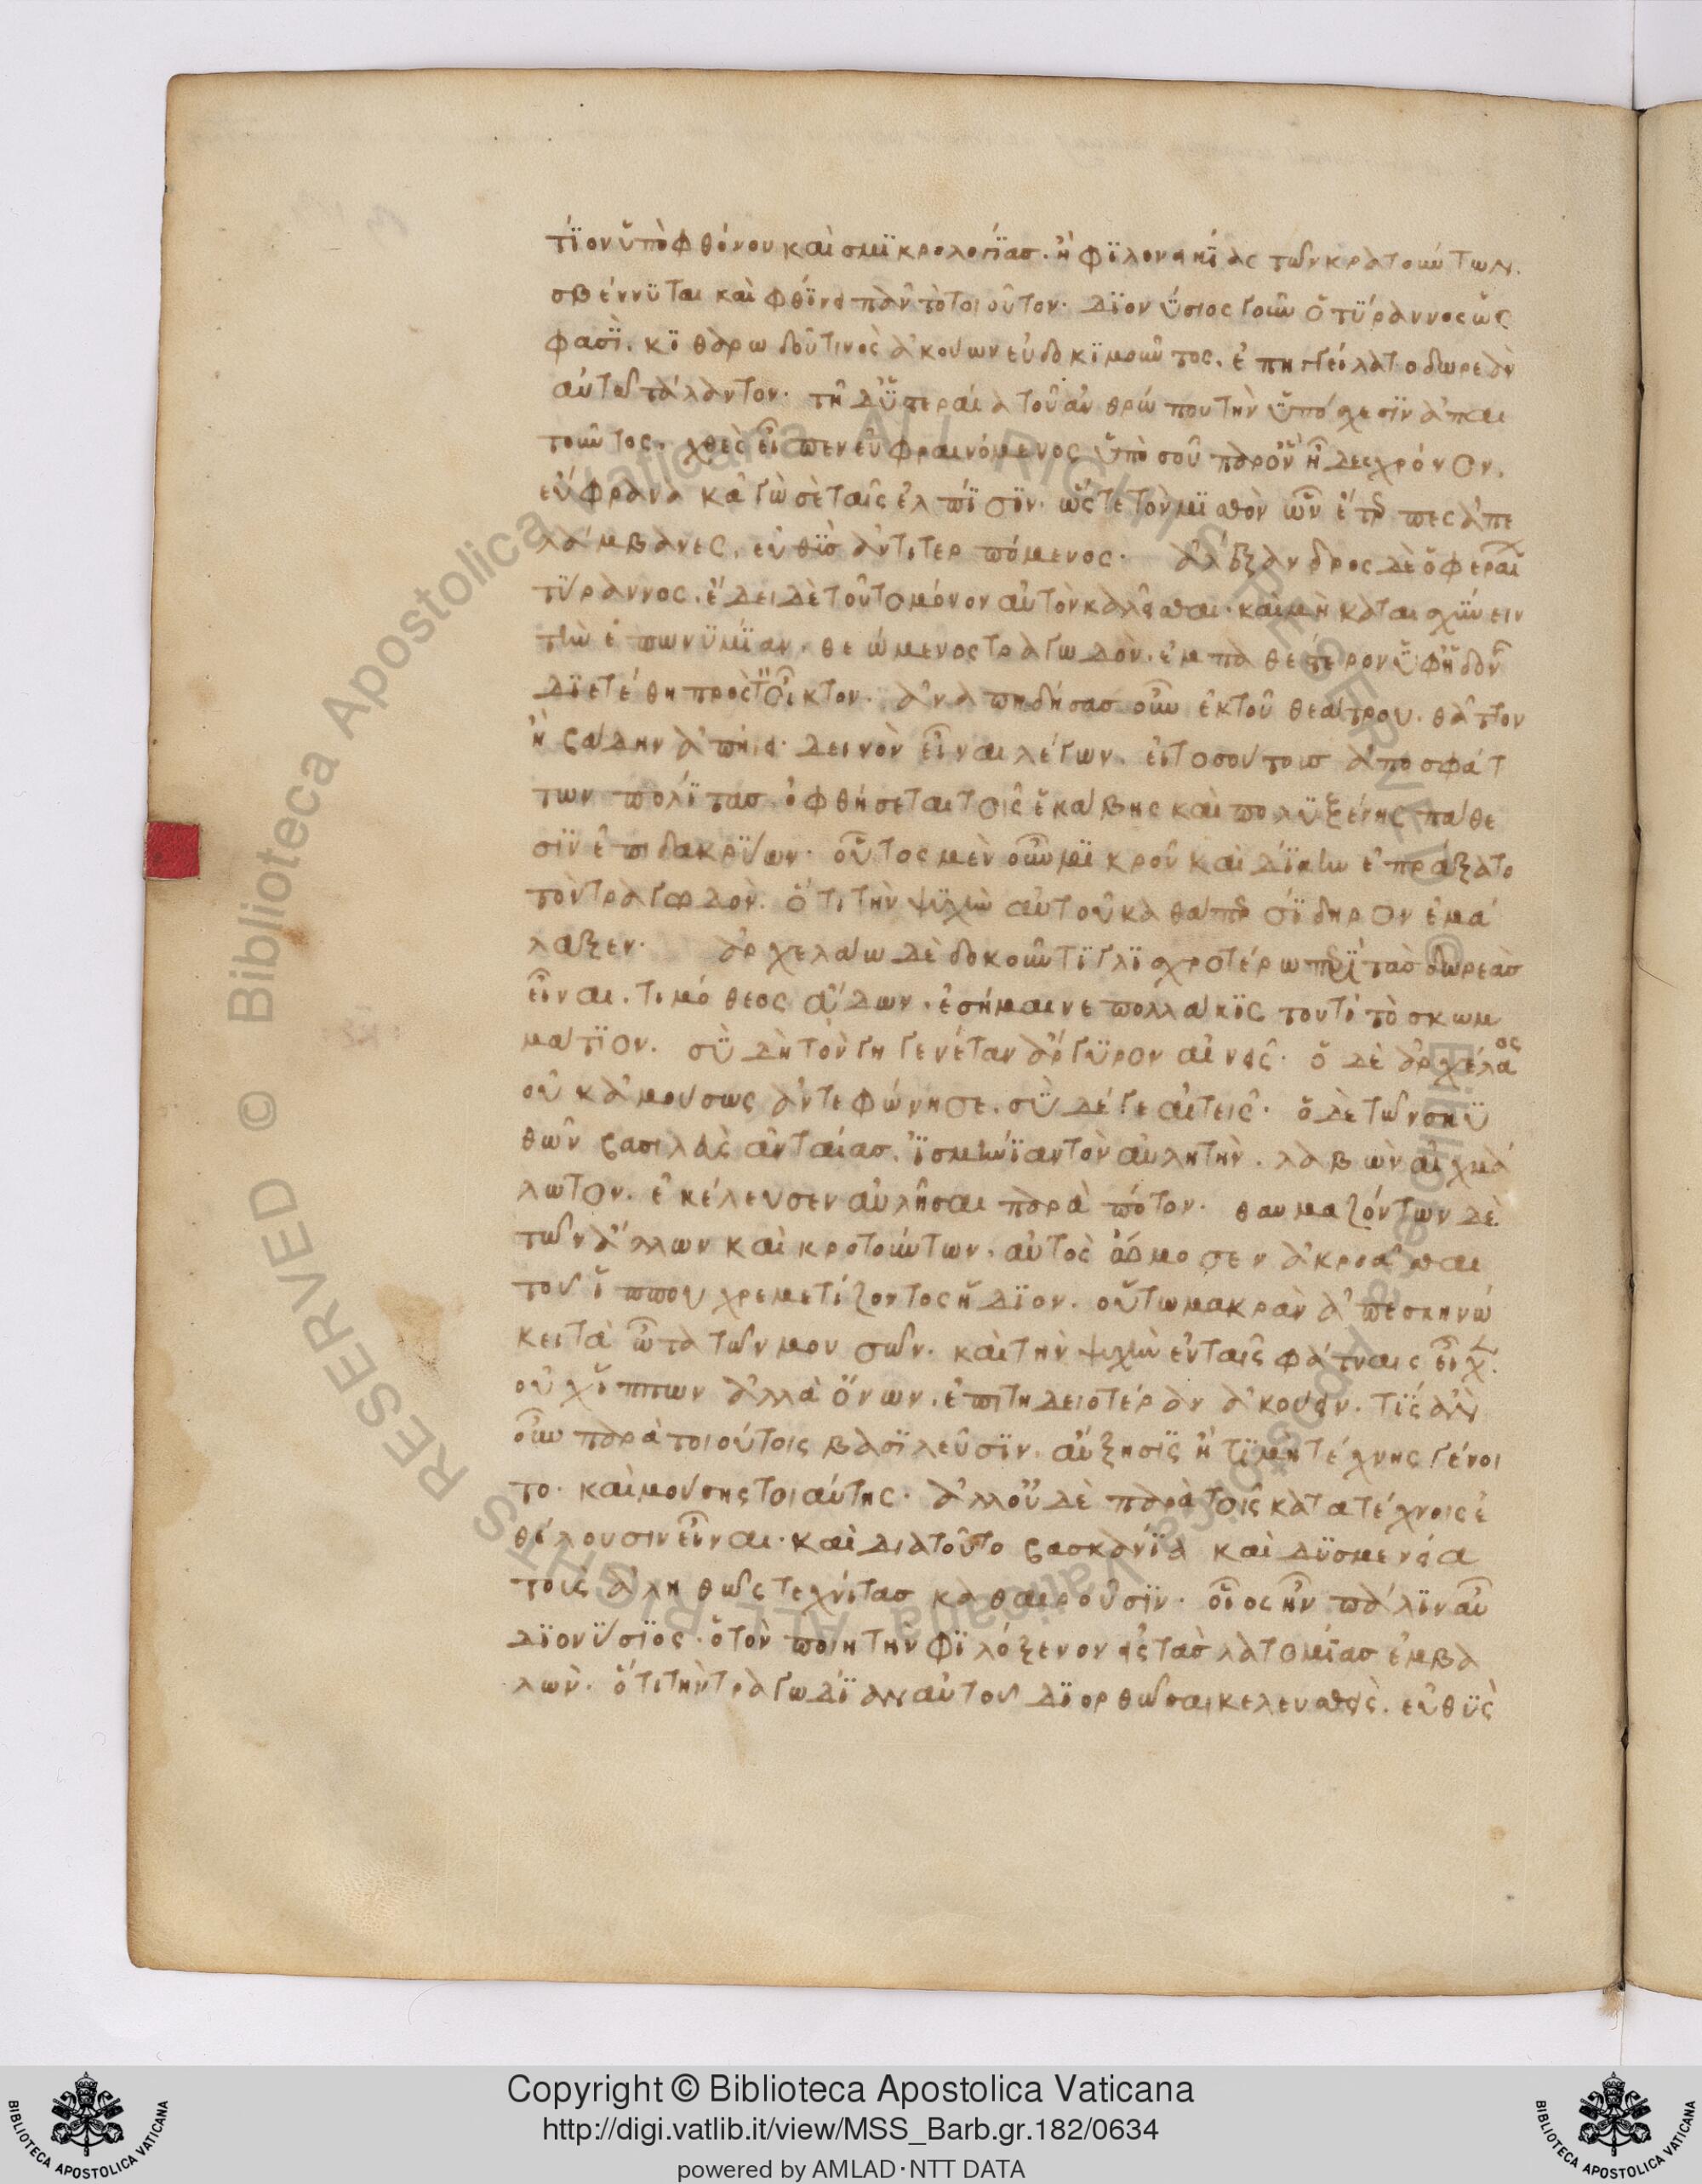 τίον ὑπὸ φθόνου καὶ σμικρολογίας. ἢ φιλονεικίας τῶν κρατούντων.
σβέννυται καὶ φθίνει πᾶν τὸ τοιοῦτον· Διονύσιος γοῦν ὁ τύραννος ὥς
φασι. κιθαρωδοῦ τινὸς ἀκούων εὐδοκιμοῦντος. ἐπηγγείλατο δωρεὰν
αὐτῶ τάλαντον· τῆ δ' ὑστεραία τοῦ ἀνθρώπου τὴν ὑπόσχεσιν ἀπαι
τοῦντος. χθὲς εἶπεν εὐφραινόμενος ὑπὸ σοῦ παρ' ὃν ἦδες χρόνον.
εὔφρανα κἀγὼ σὲ ταῖς ἐλπίσιν· ὥστε τὸν μισθὸν ὧν ἔτερπες ἀπε
λάμβανες. εὐθὺς ἀντιτερπόμενος· ἀλέξανδρος δὲ ὁ φεραῖ
τύραννος. ἔδει δὲ τοῦτο μόνον αὐτὸν καλεῖσθαι· καὶ μὴ καταισχύνειν
τὴν ἐπωνυμίαν. θεώμενος τραγωδὸν. ἐμπαθέστερον ὑφ' ἡδον
διετέθη πρὸς τὸν οἶκτον· ἀναπηδήσας οὖν ἐκ τοῦ θεάτρου. θᾶττον
ἢ βάδην ἀπήει· δεινὸν εἶναι λέγων. εἰ τοσούτους ἀποσφάτ
των πολίτας. ὀφθήσεται τοῖς ἑκάβης καὶ πολυξένης πάθε
σιν ἐπιδακρύων· οὗτος μὲν οὖν μικροῦ καὶ δίκην ἐπράξατο
τὸν τραγωδὸν. ὅτι τὴν ψυχὴν αὐτοῦ καθάπερ σίδηρον ἐμά
λαξεν. ἀρχελάω δὲ δοκοῦντι γλισχροτέρω περὶ τὰς δωρεὰς
εἶναι. τιμόθεος ἄδων. ἐσήμαινε πολλάκις τουτὶ τὸ σκωμ
μάτιον. σὺ δὴ τὸν γηγενέταν ἄργυρον αἰνεῖς· ὁ δὲ ἀρχέλαος
οὐκ ἀμούσως ἀντεφώνησε. σὺ δέ γε αἰτεῖς· ὁ δὲ τῶν σκυ
θῶν βασιλεὺς ἀνταίας. ἰσμηνίαν τὸν αὐλητὴν. λαβὼν αἰχμά
λωτον. ἐκέλευσεν αὐλῆσαι παρὰ πότον· θαυμαζόντων δὲ
τῶν ἄλλων καὶ κροτούντων. αὐτὸς ὤμοσεν ἀκροᾶσθαι
τοῦ ἵππου χρεμετίζοντος ἥδιον. οὕτω μακρὰν ἀπεσκηνώ
κει τὰ ὦτα τῶν μουσῶν. καὶ τὴν ψυχὴν ἐν ταῖς φάτναις εἶχ.
οὐχ ἵππων ἀλλὰ ὄνων. ἐπιτηδειοτέραν ἀκούειν. τίς ἂν
οὖν παρὰ τοιούτοις βασιλεῦσιν. αὔξησις ἢ τιμὴ τέχνης γένοι
το. καὶ μούσης τοιαύτης· ἀλλ' οὐδὲ παρὰ τοῖς κατατέχνοις ἐ
θέλουσιν εἶναι· καὶ διὰ τοῦτο βασκανία καὶ δυσμενεία
τοὺς ἀληθῶς τεχνίτας καθαιροῦσιν. οἷος ἦν πάλιν αὖ
διονύσιος. ὁ τὸν ποιητὴν φιλόξενον εἰς τὰς λατομίας ἐμβα
λὼν. ὅτι τὴν τραγωδίαν αὐτοῦ διορθῶσαι κελευσθεὶς. εὐθὺς